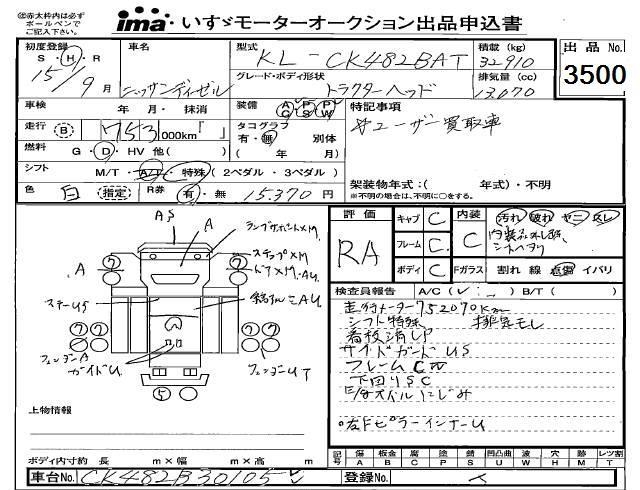 ㊟赤太枠内は必ず
ボールペンで
ご記入下さい。
ima・いすゞモーターオークション出品申込書
初度登録
S・H・R
15年 9月
車名
ニッサンディーゼル
型式
KL-CK482BAT
積載 (kg)
32910
出品 No.
3500
グレード・ボディ形状
トラクターヘッド
排気量 (cc)
13070
車検 年 月・抹消
装備 AC PS PW
特記事項
※ユーザー買取車
走行 B 753,000km「 」
タコグラフ
有・無 別体
( 年 月)
燃料 G・D・HV 他( )
シフト M/T・A/T・特殊 (2ペダル・3ペダル)
色 白 (指定) R券 有・無 15,370円
架装物年式:( 年式)・不明
※不明の場合は、不明に○をする。
評価 RA
キャブ C
フレーム C
ボディ C
内装 C
汚れ 破れ ヤニ スレ
内装品外し跡、
シートヘタリ
Fガラス 割れ 線 点傷 イバリ
検査員報告 A/C( ・ ) B/T( )
走行メーター752070km
シフト特殊 排気モレ
看板済LP
サイドガードUS
フレームCW
下回りSC
E/gオイルにじみ
右FピラーインナーU
AS
A
ランプサポートXM
ステップXM
ドアXM・AU
A
ステーUS
フェンダーA
ガイドU
フェンダーUT
⑦ ⑦
⑦⑦
⑤
上物情報
ボディ内寸約 長 m×幅 m×高 m
記号 傷 A 板金 B 腐 C 塗 P 錆 S 凹凸曲 U 波 W 穴 H 跡 M レツ割 T
車台No. CK482B30105
登録No.